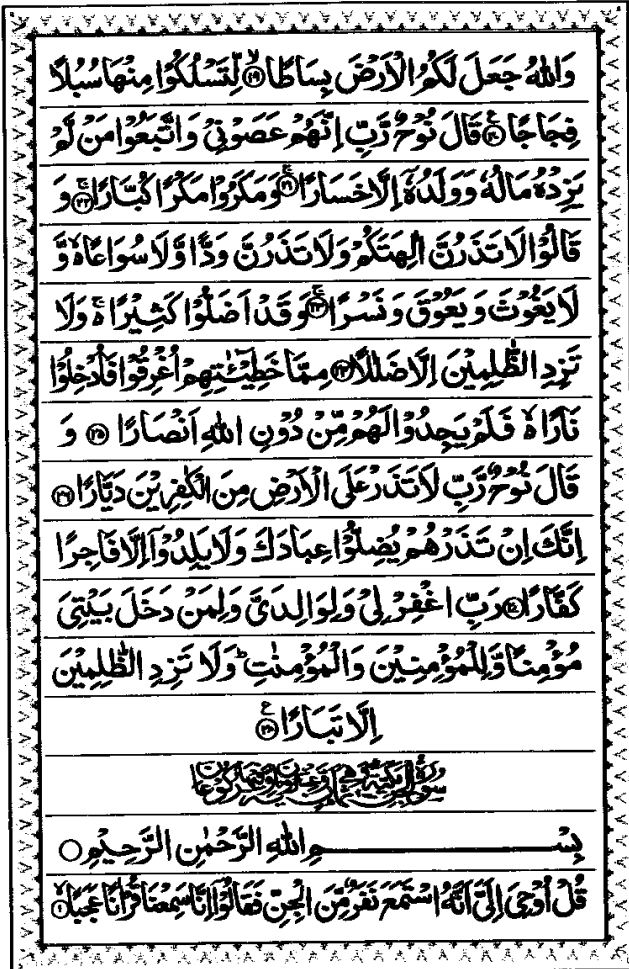 وَاللهُ جَعَلَ لَكُمُ الْاَرْضَ بِسَاطًا ۙ﴿۱۹﴾ لِّتَسْلُكُوْا مِنْهَا سُبُلًا
فِجَاجًا ﴿۲۰﴾ۧ قَالَ نُوْحٌ رَّبِّ اِنَّهُمْ عَصَوْنِيْ وَاتَّبَعُوْا مَنْ لَّمْ
يَزِدْهُ مَالُهٗ وَوَلَدُهٗۤ اِلَّا خَسَارًا ۚ﴿۲۱﴾ وَمَكَرُوْا مَكْرًا كُبَّارًا ۚ﴿۲۲﴾ وَ
قَالُوْا لَا تَذَرُنَّ اٰلِهَتَكُمْ وَلَا تَذَرُنَّ وَدًّا وَّلَا سُوَاعًا ۙ وَّ
لَا يَغُوْثَ وَيَعُوْقَ وَنَسْرًا ۚ﴿۲۳﴾ وَقَدْ اَضَلُّوْا كَثِيْرًا ۚ وَلَا
تَزِدِ الظّٰلِمِيْنَ اِلَّا ضَلٰلًا ﴿۲۴﴾ مِمَّا خَطِيْٓـٰٔتِهِمْ اُغْرِقُوْا فَاُدْخِلُوْا
نَارًا ۙ فَلَمْ يَجِدُوْا لَهُمْ مِّنْ دُوْنِ اللهِ اَنْصَارًا ﴿۲۵﴾ وَ
قَالَ نُوْحٌ رَّبِّ لَا تَذَرْ عَلَى الْاَرْضِ مِنَ الْكٰفِرِيْنَ دَيَّارًا ﴿۲۶﴾
اِنَّكَ اِنْ تَذَرْهُمْ يُضِلُّوْا عِبَادَكَ وَلَا يَلِدُوْۤا اِلَّا فَاجِرًا
كَفَّارًا ﴿۲۷﴾ رَبِّ اغْفِرْ لِيْ وَلِوَالِدَيَّ وَلِمَنْ دَخَلَ بَيْتِيَ
مُؤْمِنًا وَّلِلْمُؤْمِنِيْنَ وَالْمُؤْمِنٰتِ ؕ وَلَا تَزِدِ الظّٰلِمِيْنَ
اِلَّا تَبَارًا ﴿۲۸﴾ۧ
بِسْمِ اللهِ الرَّحْمٰنِ الرَّحِيْمِ ○
قُلْ اُوْحِيَ اِلَيَّ اَنَّهُ اسْتَمَعَ نَفَرٌ مِّنَ الْجِنِّ فَقَالُوْۤا اِنَّا سَمِعْنَا قُرْاٰنًا عَجَبًا ۙ﴿۱﴾